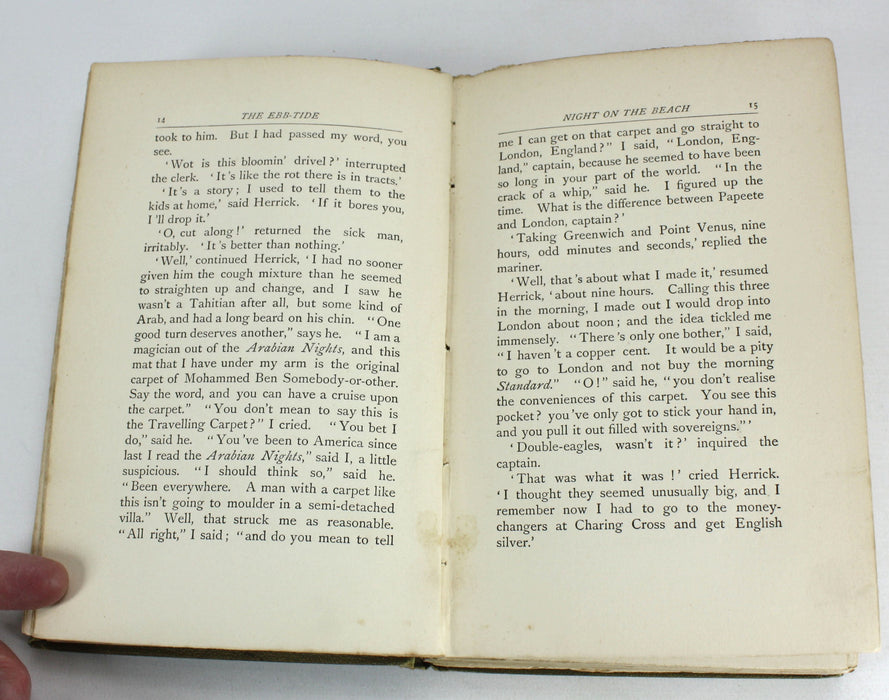 14
THE EBB-TIDE
took to him. But I had passed my word, you
see.
‘Wot is this bloomin’ drivel?’ interrupted
the clerk. ‘It’s like the rot there is in tracts.’
‘It’s a story; I used to tell them to the
kids at home,’ said Herrick. ‘If it bores you,
I ’ll drop it.’
‘O, cut along!’ returned the sick man,
irritably. ‘It’s better than nothing.’
‘Well,’ continued Herrick, ‘I had no sooner
given him the cough mixture than he seemed
to straighten up and change, and I saw he
wasn’t a Tahitian after all, but some kind of
Arab, and had a long beard on his chin. “One
good turn deserves another,” says he. “I am a
magician out of the Arabian Nights, and this
mat that I have under my arm is the original
carpet of Mohammed Ben Somebody-or-other.
Say the word, and you can have a cruise upon
the carpet.” “You don’t mean to say this is
the Travelling Carpet?” I cried. “You bet I
do,” said he. “You’ve been to America since
last I read the Arabian Nights,” said I, a little
suspicious. “I should think so,” said he.
“Been everywhere. A man with a carpet like
this isn’t going to moulder in a semi-detached
villa.” Well, that struck me as reasonable.
“All right,” I said; “and do you mean to tell
NIGHT ON THE BEACH
15
me I can get on that carpet and go straight to
London, England?” I said, “London, Eng-
land,” captain, because he seemed to have been
so long in your part of the world. “In the
crack of a whip,” said he. I figured up the
time. What is the difference between Papeete
and London, captain?’
‘Taking Greenwich and Point Venus, nine
hours, odd minutes and seconds,’ replied the
mariner.
‘Well, that’s about what I made it,’ resumed
Herrick, ‘about nine hours. Calling this three
in the morning, I made out I would drop into
London about noon; and the idea tickled me
immensely. “There’s only one bother,” I said,
“I haven’t a copper cent. It would be a pity
to go to London and not buy the morning
Standard.” “O!” said he, “you don’t realise
the conveniences of this carpet. You see this
pocket? you’ve only got to stick your hand in,
and you pull it out filled with sovereigns.”’
‘Double-eagles, wasn’t it?’ inquired the
captain.
‘That was what it was!’ cried Herrick.
‘I thought they seemed unusually big, and I
remember now I had to go to the money-
changers at Charing Cross and get English
silver.’